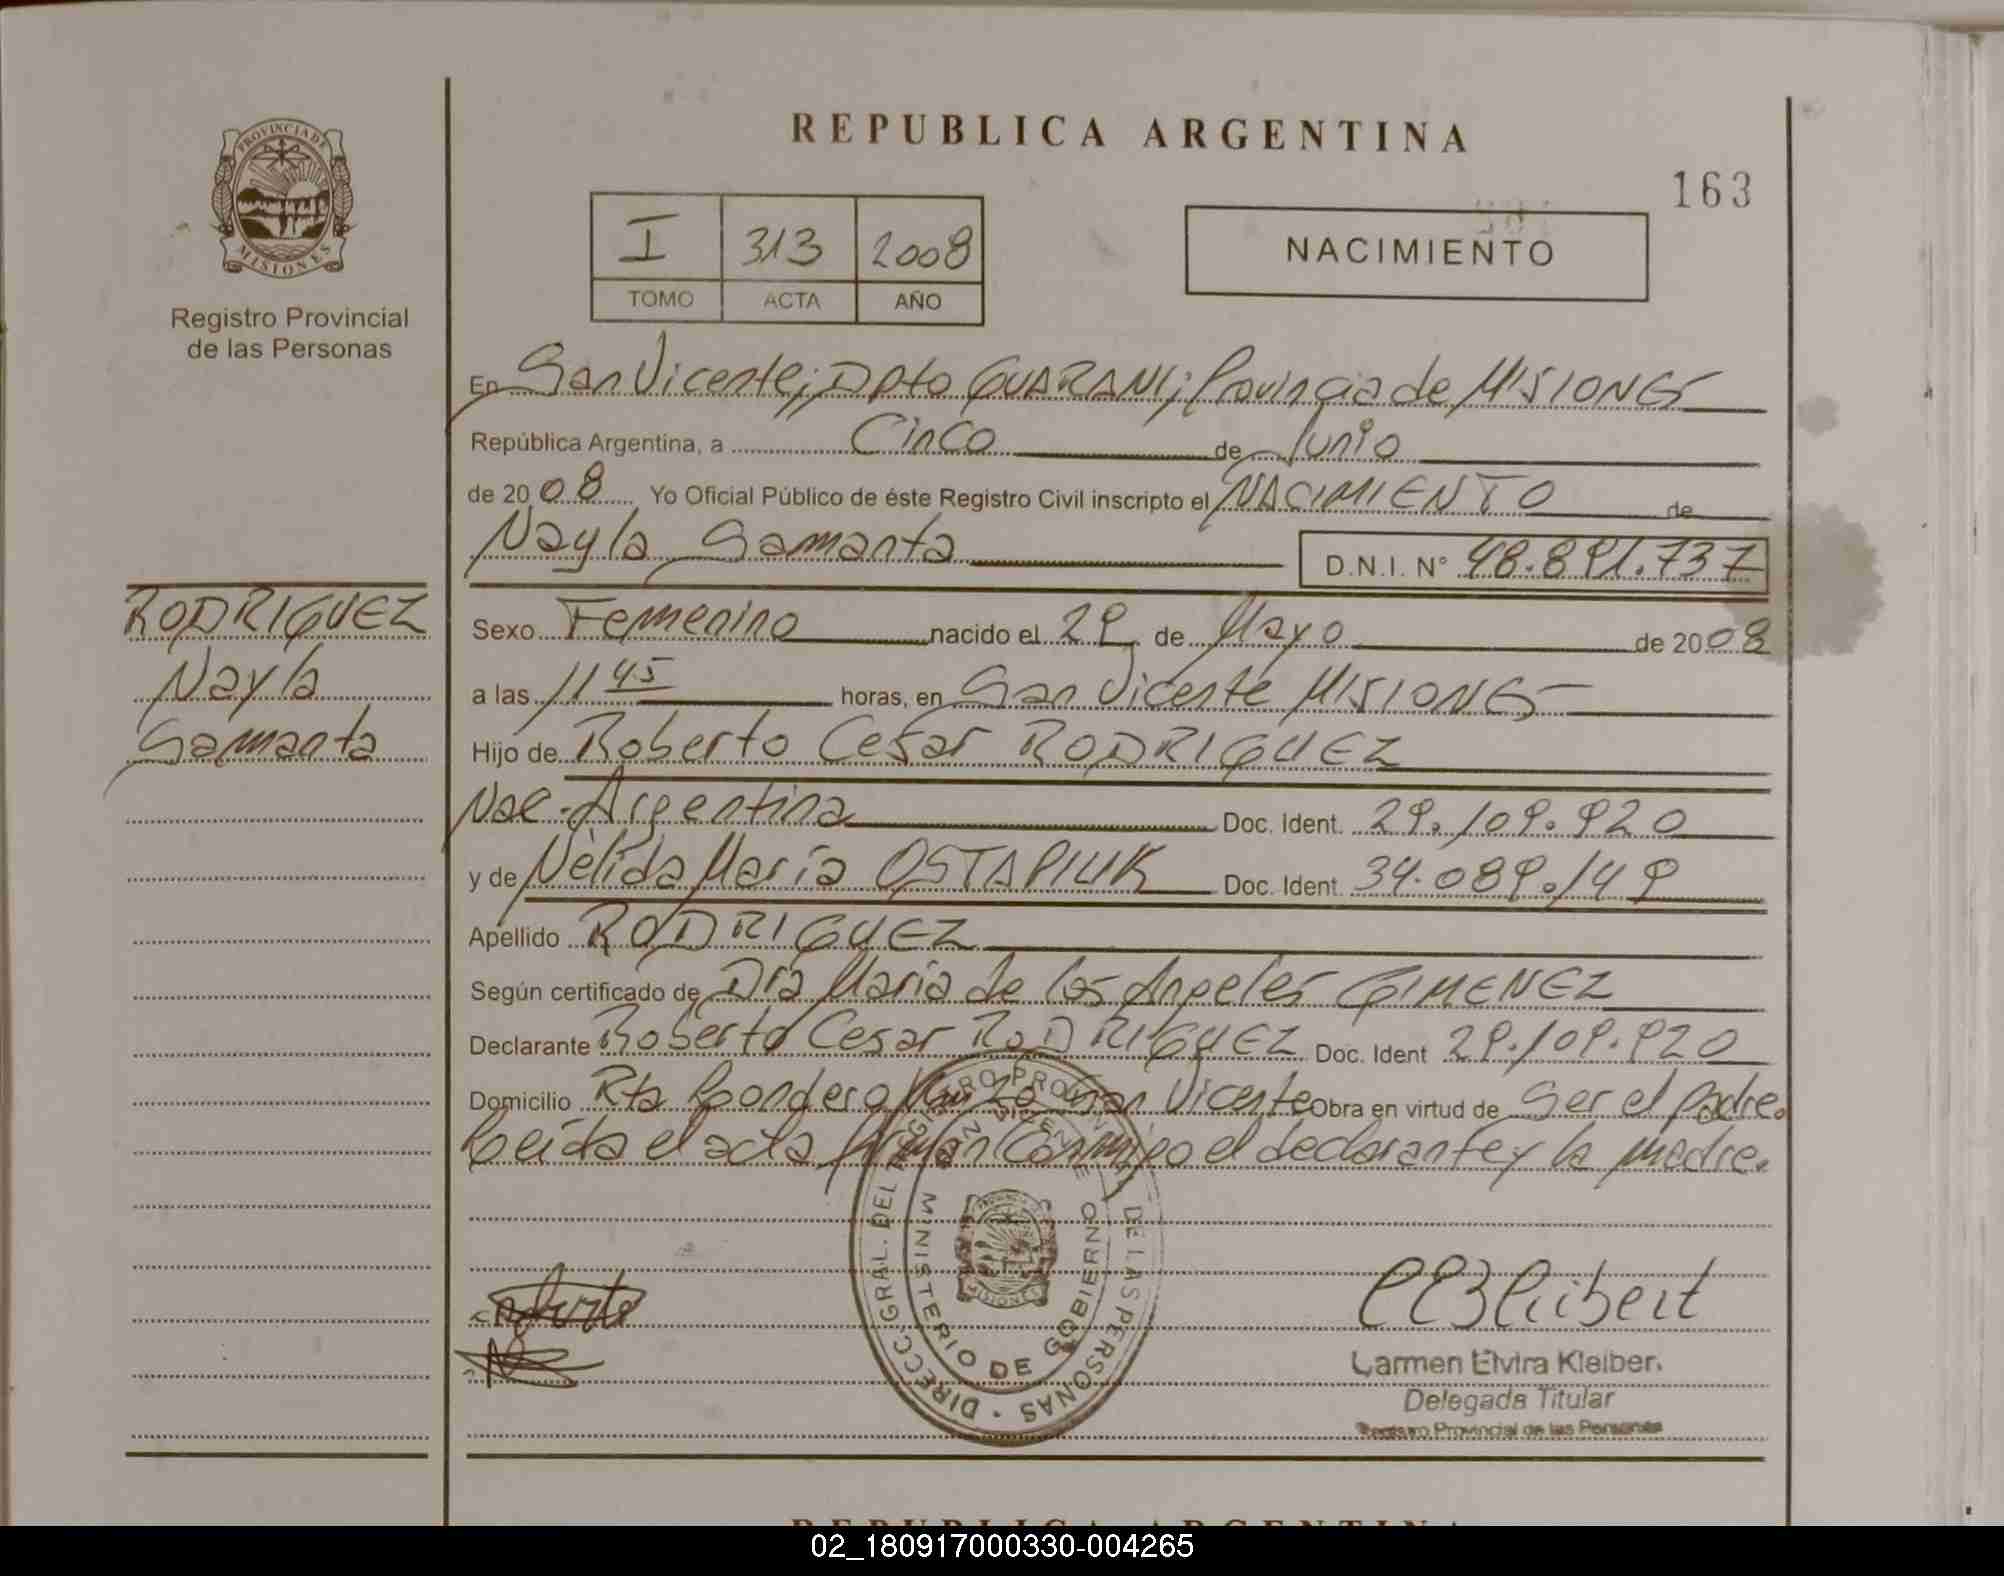 REPUBLICA ARGENTINA
163
PROVINCIA DE
MISIONES
Registro Provincial
de las Personas
I 313 2008
TOMO ACTA AÑO
NACIMIENTO
En San Vicente; Dpto GUARANI; Provincia de MISIONES
República Argentina, a Cinco de Junio
de 2008 Yo Oficial Público de éste Registro Civil inscripto el NACIMIENTO de
Nayla Samanta D.N.I. N° 48.891.737
RODRIGUEZ
Nayla
Samanta
Sexo Femenino nacido el 29 de Mayo de 2008
a las 11 45 horas, en San Vicente MISIONES
Hijo de Roberto Cesar RODRIGUEZ
Nac. Argentina Doc. Ident. 29.109.920
y de Nélida María OSTAPIUK Doc. Ident. 34.089.149
Apellido RODRIGUEZ
Según certificado de Dra María de los Angeles GIMENEZ
Declarante Roberto Cesar RODRIGUEZ Doc. Ident 29.109.920
Domicilio Rta San Vicente Obra en virtud de Ser el padre.
Leída el acta firman Conmigo el declarante y la madre.
DIRECC. GRAL. DEL REGISTRO PROVINCIAL DE LAS PERSONAS
MINISTERIO DE GOBIERNO
MISIONES
Carmen Elvira Kleiber.
Delegada Titular
Registro Provincial de las Personas
REPUBLICA ARGENTINA
02_180917000330-004265